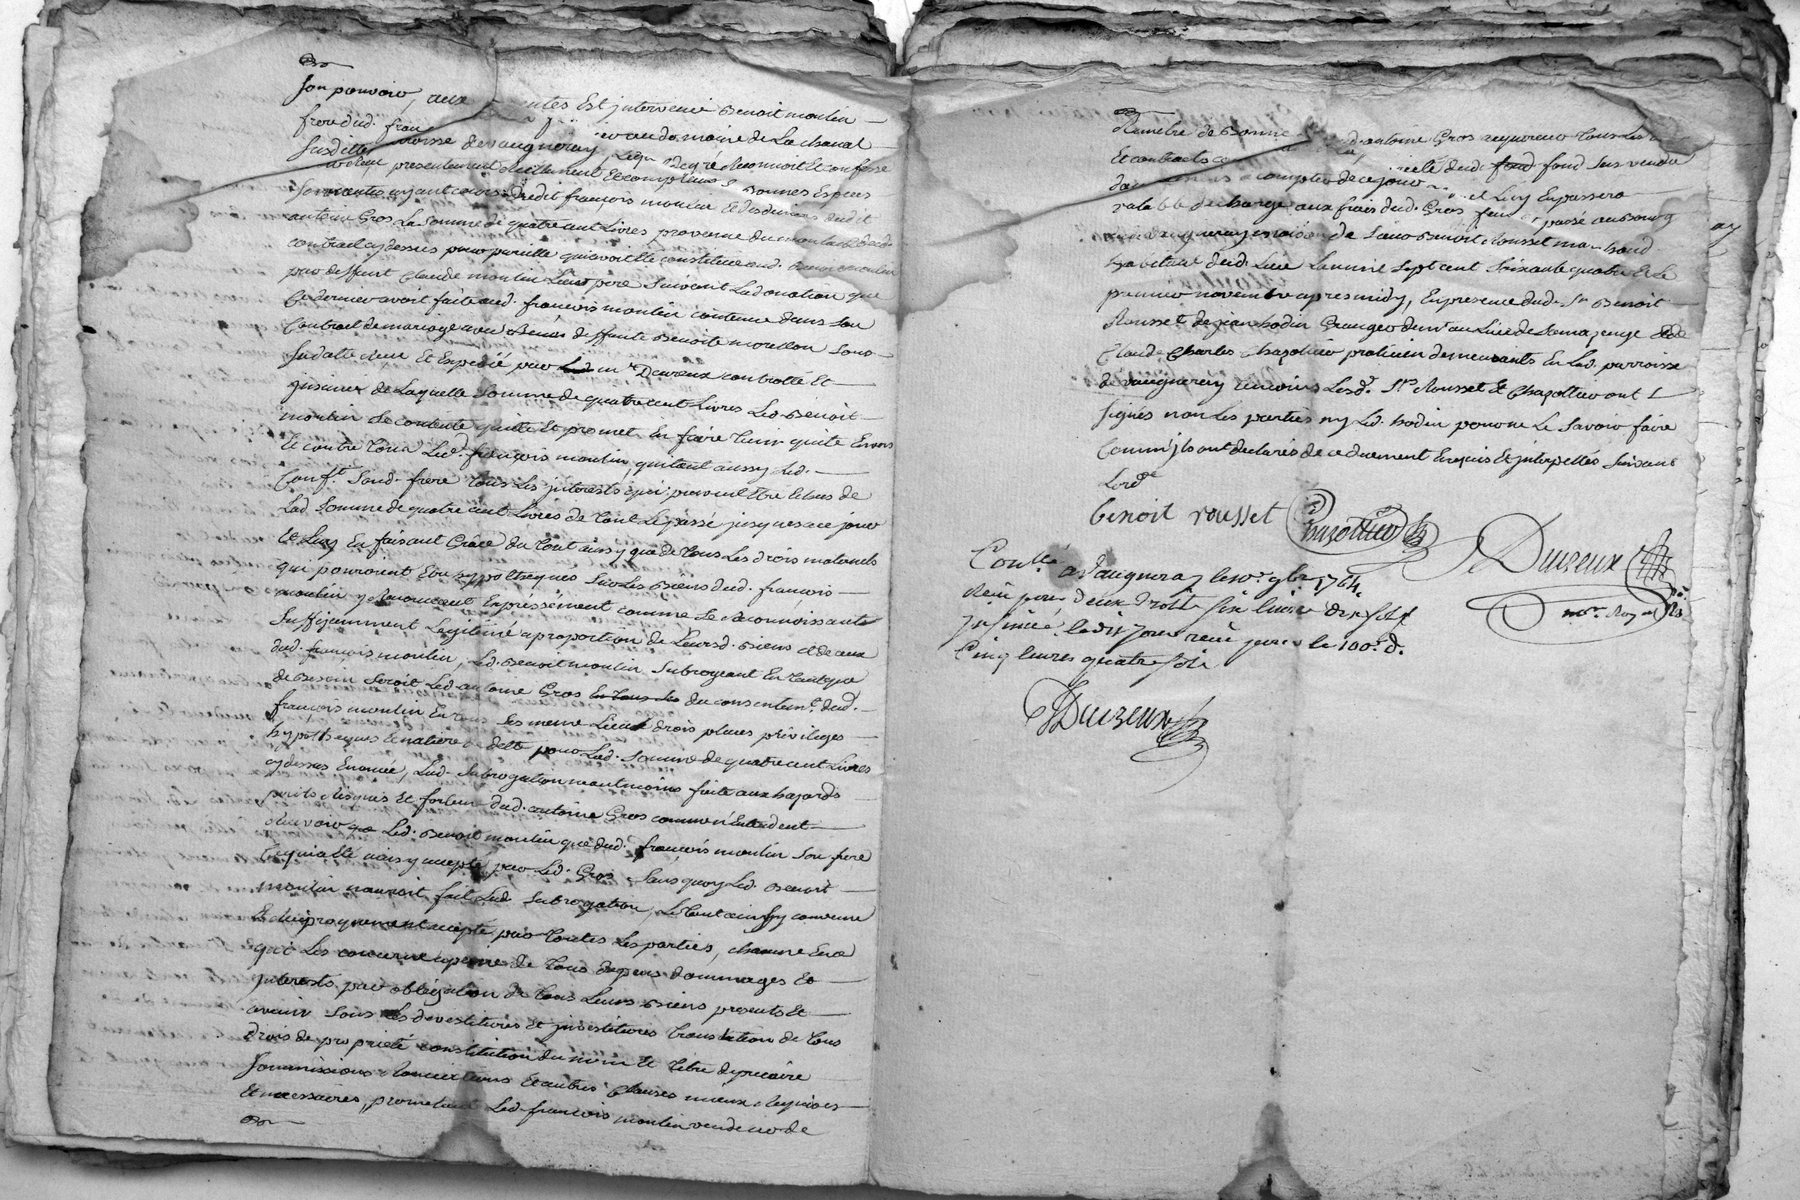 son pouvoir, aux Est intervenu Benoit moulin
frere dud. fran au domaine de La chanal
susditte parroisse de vaugneray, Leq. degré Reconnoit Et confesse
presentement réellement Et comptant Bonnes Especes
sonnantes ayant cours dudit françois moulin Et des deniers dudit
antoine Gros La somme de quatre cent Livres provenue du
contract cy dessus pour pareille qui avoit été constituée aud. Benoit moulin
par deffunt Claude moulin Leur pere suivant La donation que
Ce dernier avoit faite aud. françois moulin contenue dans son
Contract de mariage avec deffunte Benoite morellon sous
sa datte reçu Et Expedié par me Duvreux controllé Et
jnsinué de Laquelle somme de quatre cent Livres Led. Benoit
moulin se contente quitte Et promet En faire tenir quite Envers
Et contre tous Led. françois moulin, quitant aussy Led.
Conf.t sond. frere tous Les jnterests qui peuvent être Echus de
Lad. somme de quatre cent Livres de tout Le passé jusques a ce jour
Et Luy En faisant Grâce du tout ainsy que de tous Les drois maternels
qui pouroient Etre hypotheques sur Les Biens dud. françois
moulin y Renonceant Expressément comme Se Reconnoissant
suffisamment Legitimé a proportion de Leursd. Biens Et de ceux
dud. françois moulin, Led. Benoit moulin subrogeant En tant que
de Besoin seroit Led. antoine Gros En tous Les du consentemt. dud.
françois moulin En tous les meme Lieux drois places privileges
hypotheques Et nature de dette pour Lad. somme de quatre cent Livres
cy dessus Enoncée, Lad. subrogation neantmoins faite aux hazards
perils Risques Et fortune dud. antoine Gros comme n'Entendent
Led. Benoit moulin que dud. françois moulin son frere
Ce qui a été ainsy accepté par Led. Gros sans quoy Led. Benoit
moulin nauroit fait Lad. subrogation, Le tout ainssy convenu
Et Reciproquement accepté par toutes Les parties, chacune En ce
qui Les concerne a peine de tous depens dommages Et
jnterests par obligation de tous Leurs Biens presents Et
avenir sous Les devestitures Et jnvestitures translation de tous
drois de proprieté constitution du nom Et titre de precaire
soumissions Renonciations Et autres Clauses mieux Requises
Et necessaires, promettant Led. françois moulin vendeur de
Remetre de Bonne antoine Gros acquereur tous Les
Et contracts dud. fond fond sus vendu
a compter de ce jour Et Luy En passera
valable decharge aux frais dud. Gros fait Et passé au Bourg
de vaugneray maison de sieur Benoit Rousset marchand
habitant dud. Lieu L'an mil sept cent soixante quatre Et Le
premier novembre apres midy, En presence dud. Sr Benoit
Rousset de jean bodin Granger demt. au Lieu de
Claude Charles Chazottier praticien demeurants En Lad. parroisse
de vaugneray temoins Lesd. Srs Rousset Et Chazottier ont
signés non Les parties ny Led. bodin pour ne Le savoir faire
Comm'jls ont declarés de ce duement Enquis Et jnterpellés suivant
Lorde
benoit rousset Chazottier Duvreux
nore. Royal
Contlé. a Vaugneray le 10e. 9bre 1764.
Reçu pour deux droits six livres dix sols
jnsinué led. jour reçu pour le 100e. d.
Cinq livres quatre sols
Duvreux